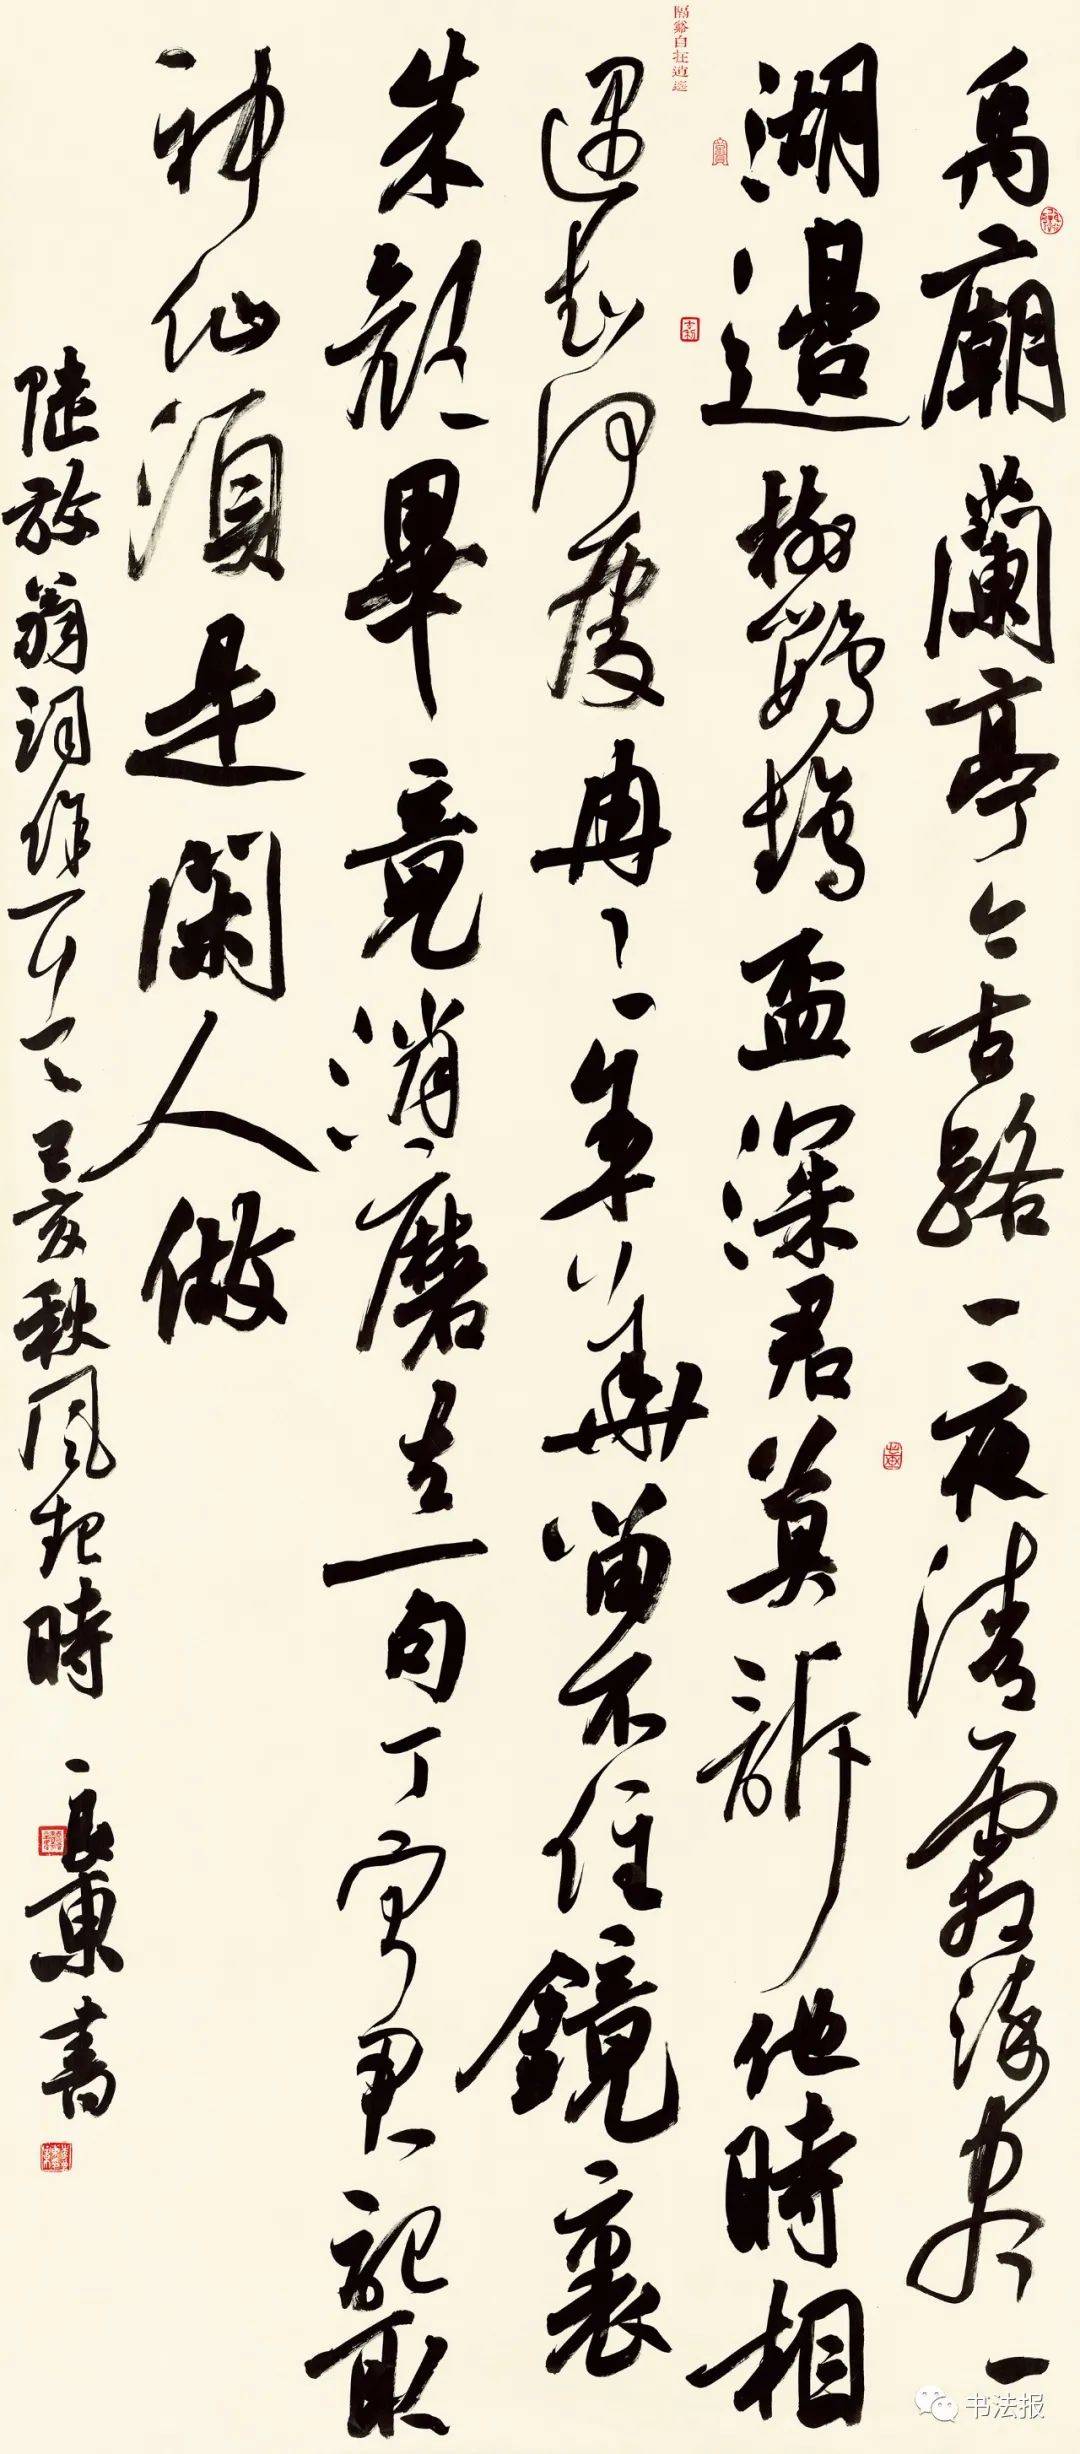 禹廟蘭亭今古路一夜清霜染盡
湖邊樹鸚鵡盃深君莫訴他時相
遇知何處冉〻年華留不住鏡裏
朱顏畢竟消磨去一句丁寧君記取
神仙須是閑人做
陸放翁詞作 己亥秋風起時 良東書
书法报